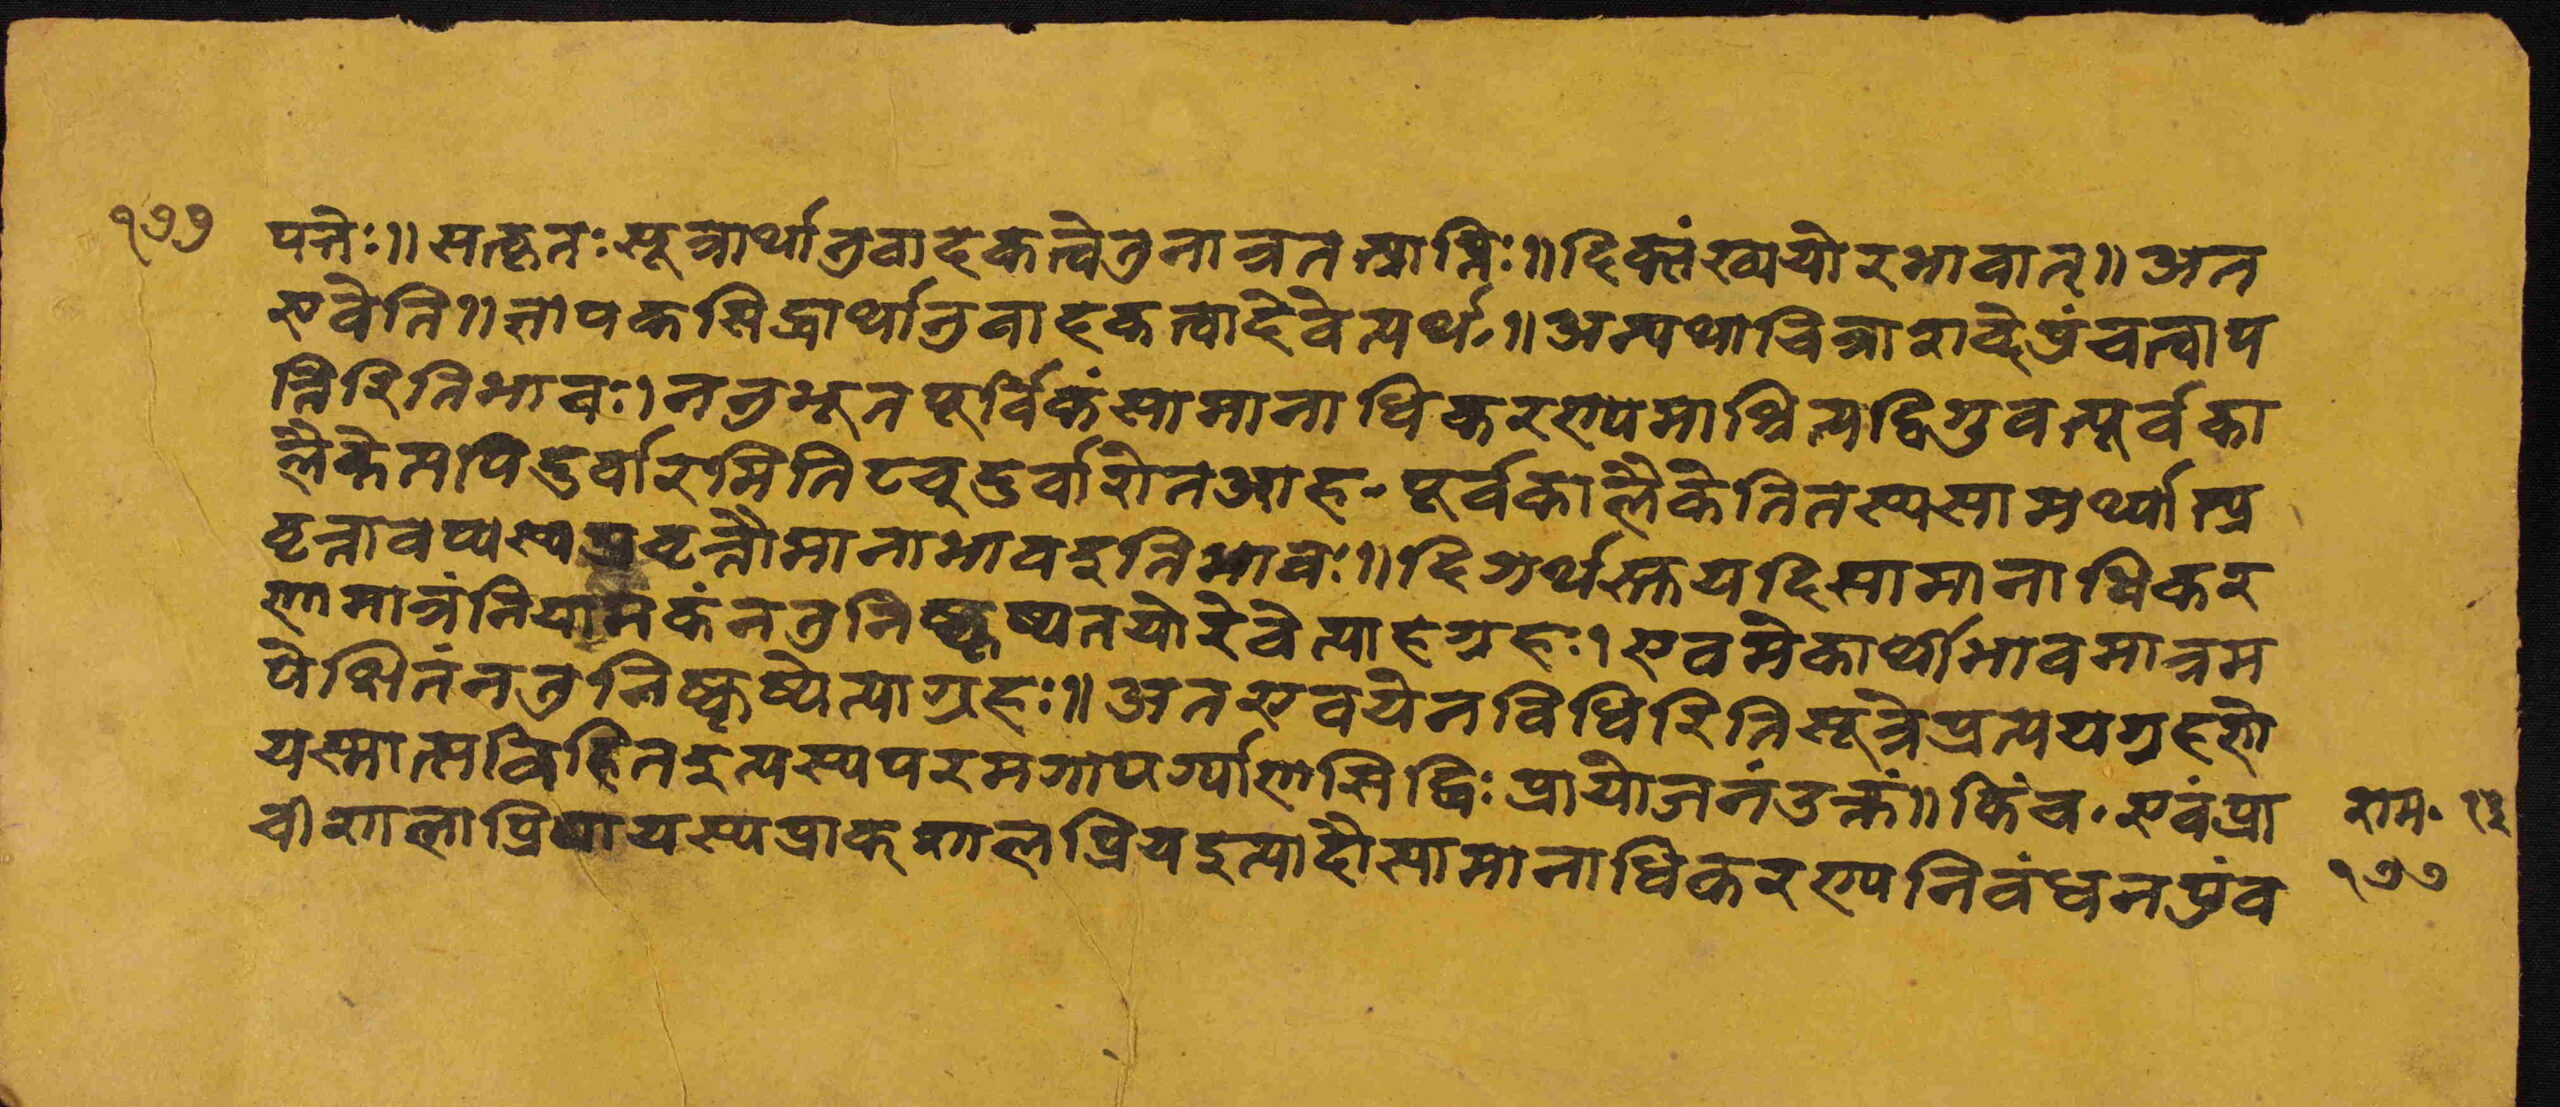 १७७ पत्तेः॥ सत्कृतः सूत्रार्थानुवादकत्वेतुनात्रतत्प्राप्तिः॥ दिक्संख्ययोरभावात्॥ अत
एवेति॥ ज्ञापकसिद्धार्थानुवादकत्वादेवेत्यर्थः॥ अन्यथाचित्राशब्देपुंवत्वाप
त्तिरितिभावः। ननुभूतपूर्विकंसामानाधिकरण्यमाश्रित्यद्विगुवत्पूर्वका
लैकेत्यपिदुर्वारमितिटच्दुर्वारोतआह॰ पूर्वकालैकेतितस्यसामर्थ्यात्प्र
वृत्तावप्यस्यप्रवृत्तौमानाभावइतिभावः॥ दिगर्थस्तुयदिसामानाधिकर
ण्यमात्रंनियामकंनतुनिष्कृष्यतयोरेवेत्याहग्रहः। एवमेकार्थीभावमात्रम
पेक्षितंनतुनिष्कृष्येत्याग्रहः॥ अतएवयेनविधिरितिसूत्रेप्रत्ययग्रहणे
यस्मात्सविहितइत्यस्यपरमगार्ग्यायणसिद्धिः प्रायोजनंउक्तं॥ किंच॰ एवंप्रा
चीशालाप्रियायस्यप्राक्शालप्रियइत्यादौसामानाधिकरण्यनिबंधनपुंव
राम॰
१७७